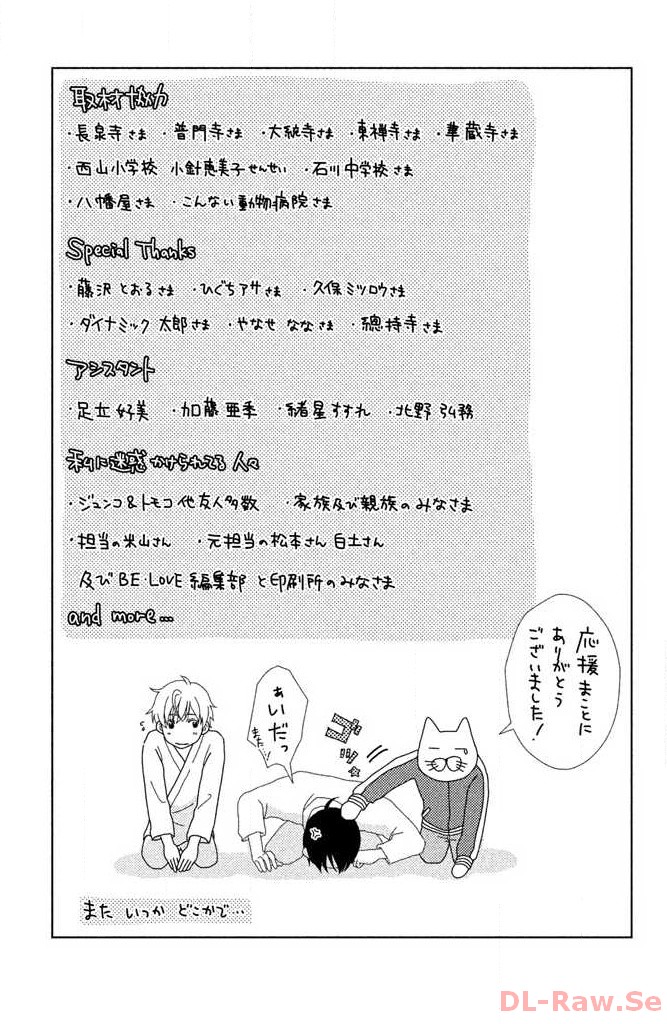 取材協力
・長泉寺さま ・普門寺さま ・大統寺さま ・東禅寺さま ・華蔵寺さま
・西山小学校 小針恵美子せんせい ・石川中学校さま
・八幡屋さま ・こんない動物病院さま
Special Thanks
・藤沢とおるさま ・ひぐちアサさま ・久保ミツロウさま
・ダイナミック太郎さま ・やなせななさま ・總持寺さま
アシスタント
・足立好美 ・加藤亜季 ・緒星すすれ ・北野弘務
私に迷惑かけられてる人々
・ジュンコ&トモコ他友人多数 ・家族及び親族のみなさま
・担当の米山さん ・元担当の松本さん白土さん
及びBE・LOVE編集部と印刷所のみなさま
and more…
応援まことに
ありがとう
ございました!
ゴッ
あいだっ
また!!
また いつか どこかで…
DL-Raw.Se